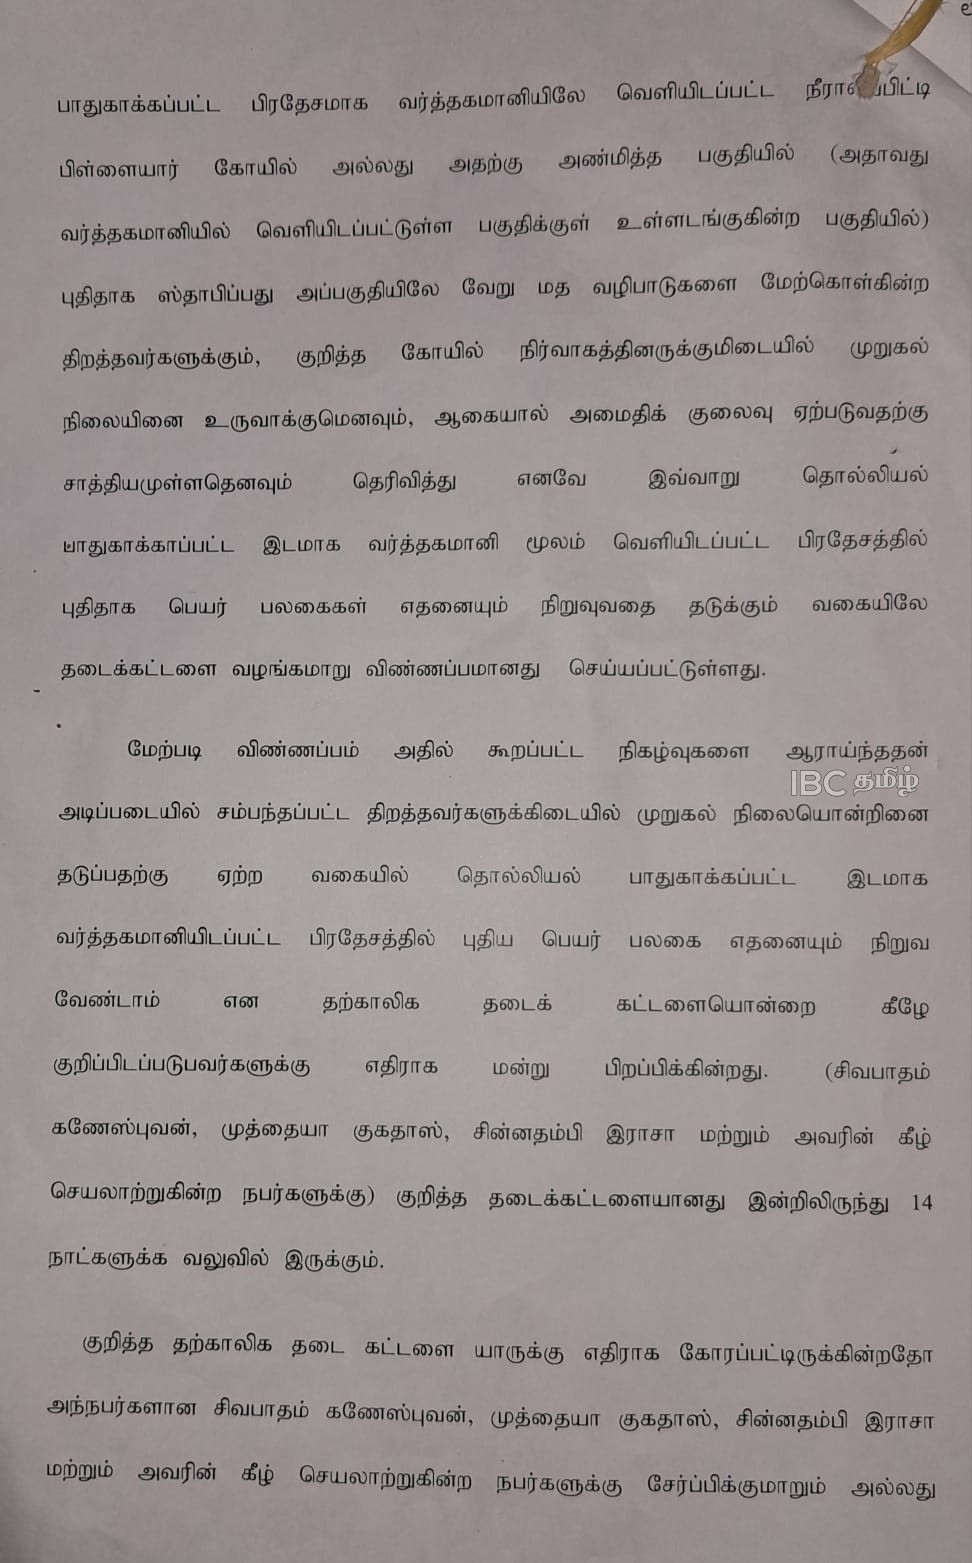 பாதுகாக்கப்பட்ட பிரதேசமாக வர்த்தகமானியிலே வெளியிடப்பட்ட
பிள்ளையார் கோயில் அல்லது அதற்கு அண்மித்த பகுதியில் (அதாவது
வர்த்தகமானியில் வெளியிடப்பட்டுள்ள பகுதிக்குள் உள்ளடங்குகின்ற பகுதியில்)
புதிதாக ஸ்தாபிப்பது அப்பகுதியிலே வேறு மத வழிபாடுகளை மேற்கொள்கின்ற
திறத்தவர்களுக்கும், குறித்த கோயில் நிர்வாகத்தினருக்குமிடையில் முறுகல்
நிலையினை உருவாக்குமெனவும், ஆகையால் அமைதிக் குலைவு ஏற்படுவதற்கு
சாத்தியமுள்ளதெனவும் தெரிவித்து எனவே இவ்வாறு தொல்லியல்
பாதுகாக்காப்பட்ட இடமாக வர்த்தகமானி மூலம் வெளியிடப்பட்ட பிரதேசத்தில்
புதிதாக பெயர் பலகைகள் எதனையும் நிறுவுவதை தடுக்கும் வகையிலே
தடைக்கட்டளை வழங்கமாறு விண்ணப்பமானது செய்யப்பட்டுள்ளது.
மேற்படி விண்ணப்பம் அதில் கூறப்பட்ட நிகழ்வுகளை ஆராய்ந்ததன்
IBC தமிழ்
அடிப்படையில் சம்பந்தப்பட்ட திறத்தவர்களுக்கிடையில் முறுகல் நிலையொன்றினை
தடுப்பதற்கு ஏற்ற வகையில் தொல்லியல் பாதுகாக்கப்பட்ட இடமாக
வர்த்தகமானியிடப்பட்ட பிரதேசத்தில் புதிய பெயர் பலகை எதனையும் நிறுவ
வேண்டாம் என தற்காலிக தடைக் கட்டளையொன்றை கீழே
குறிப்பிடப்படுபவர்களுக்கு எதிராக மன்று பிறப்பிக்கின்றது. (சிவபாதம்
கணேஸ்புவன், முத்தையா குகதாஸ், சின்னதம்பி இராசா மற்றும் அவரின் கீழ்
செயலாற்றுகின்ற நபர்களுக்கு) குறித்த தடைக்கட்டளையானது இன்றிலிருந்து 14
நாட்களுக்க வலுவில் இருக்கும்.
குறித்த தற்காலிக தடை கட்டளை யாருக்கு எதிராக கோரப்பட்டிருக்கின்றதோ
அந்நபர்களான சிவபாதம் கணேஸ்புவன், முத்தையா குகதாஸ், சின்னதம்பி இராசா
மற்றும் அவரின் கீழ் செயலாற்றுகின்ற நபர்களுக்கு சேர்ப்பிக்குமாறும் அல்லது